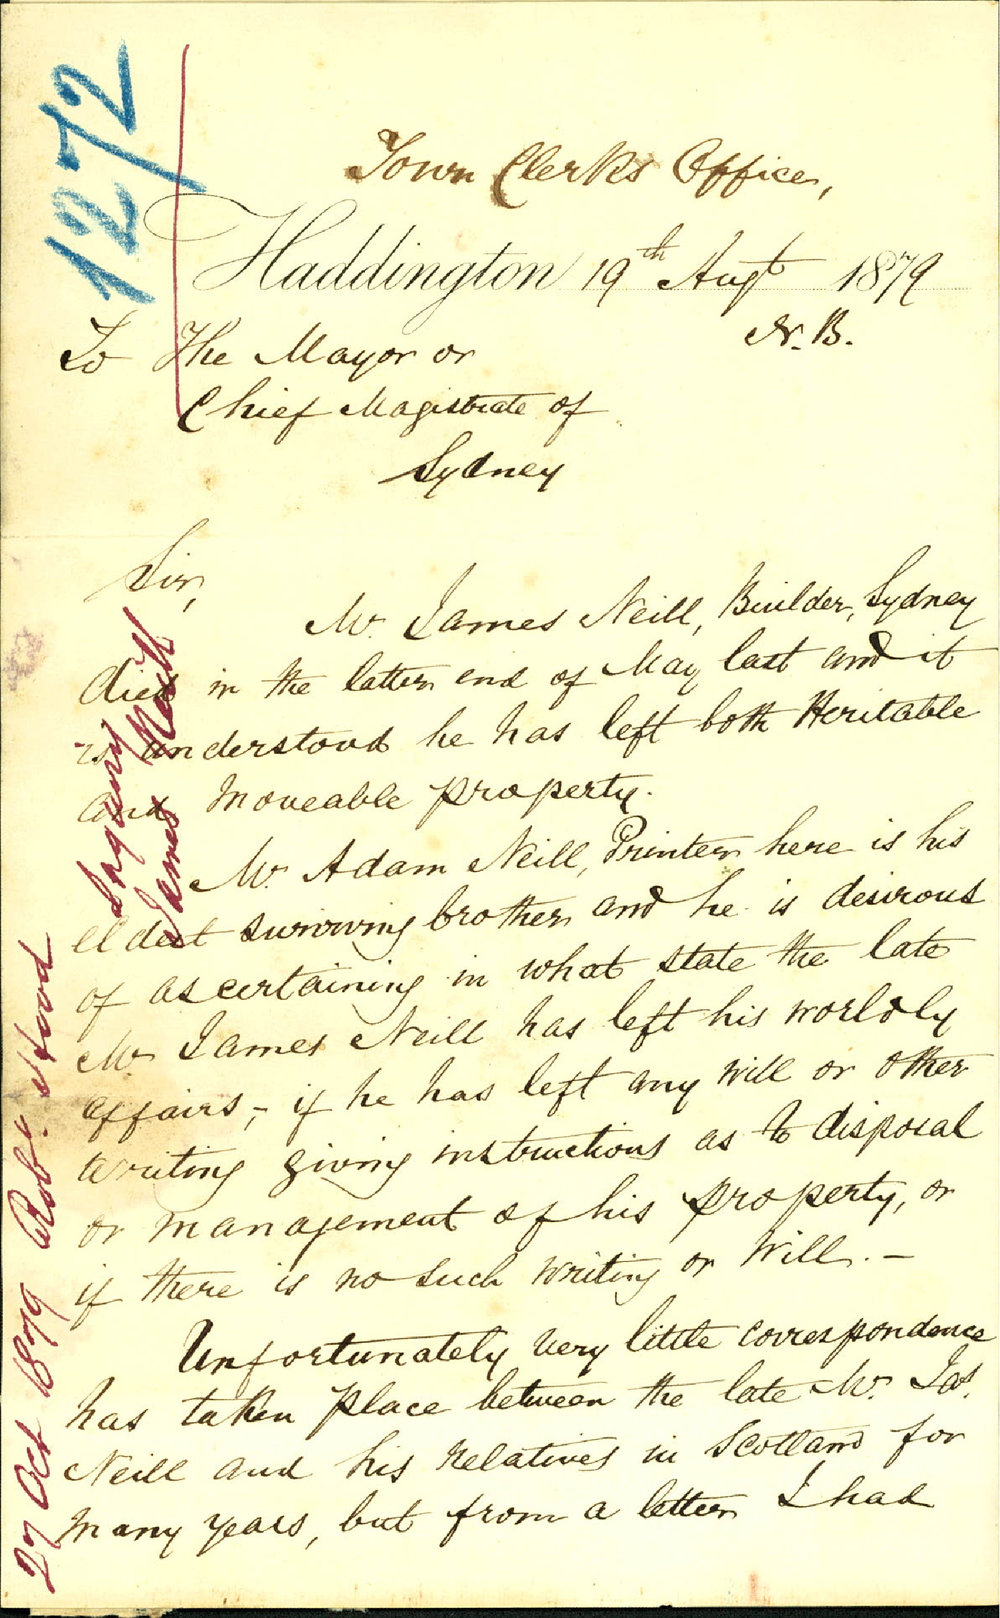 1272
Town Clerks Office,
Haddington 19th Augt 1879
N.B.
To The Mayor or
Chief Magistrate of
Sydney
Sir,
Mr. James Neill, Builder, Sydney
died in the latter end of May last and it
is understood he has left both Heritable
and Moveable property.
Mr. Adam Neill, Printer here is his
eldest surviving brother and he is desirous
of ascertaining in what state the late
Mr James Neill has left his worldly
affairs, - if he has left any will or other
writing giving instructions as to disposal
or management of his property, or
if there is no such writing or Will. -
Unfortunately very little correspondence
has taken place between the late Mr. Jas.
Neill and his relatives in Scotland for
many years, but from a letter I had
27 Oct 1879 Robt. Hood
Inquiry
James Neill